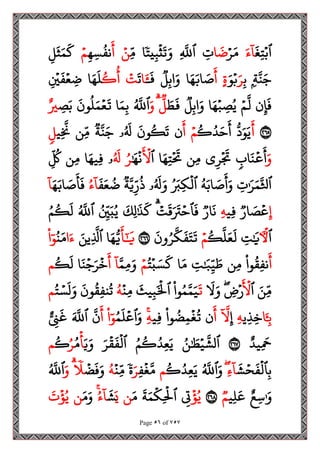 ٱبۡتِغَآءَ مَرۡضَاتِ ٱللَّهِ وَتَثۡبِيتٗا مِّنۡ أَنفُسِهِمۡ كَمَثَلِ
جَنَّةِۭ بِرُبۡوَةٍ أَصَابَهَا وَابِلٞ فَـَٔاتَتۡ أُكُلَهَا ضِعۡفَيۡنِ
فَإِن لَّمۡ يُصِبۡهَا وَابِلٞ فَطَلّٞۗ وَٱللَّهُ بِمَا تَعۡمَلُونَ بَصِيرٌ
٢٦٥ أَيَوَدُّ أَحَدُكُمۡ أَن تَكُونَ لَهُۥ جَنَّةٞ مِّن نَّخِيلٖ
وَأَعۡنَابٖ تَجۡرِي مِن تَحۡتِهَا ٱلۡأَنۡهَٰرُ لَهُۥ فِيهَا مِن كُلِّ
ٱلثَّمَرَٰتِ وَأَصَابَهُ ٱلۡكِبَرُ وَلَهُۥ ذُرِّيَّةٞ ضُعَفَآءُ فَأَصَابَهَآ
إِعۡصَارٞ فِيهِ نَارٞ فَٱحۡتَرَقَتۡۗ كَذَٰلِكَ يُبَيِّنُ ٱللَّهُ لَكُمُ
ٱلۡأٓيَٰتِ لَعَلَّكُمۡ تَتَفَكَّرُونَ ٢٦٦ يَٰٓأَيُّهَا ٱلَّذِينَ ءَامَنُوٓاْ
أَنفِقُواْ مِن طَيِّبَٰتِ مَا كَسَبۡتُمۡ وَمِمَّآ أَخۡرَجۡنَا لَكُم
مِّنَ ٱلۡأَرۡضِۖ وَلَا تَيَمَّمُواْ ٱلۡخَبِيثَ مِنۡهُ تُنفِقُونَ وَلَسۡتُم
بِـَٔاخِذِيهِ إِلَّآ أَن تُغۡمِضُواْ فِيهِۚ وَٱعۡلَمُوٓاْ أَنَّ ٱللَّهَ غَنِيٌّ
حَمِيدٌ ٢٦٧ ٱلشَّيۡطَٰنُ يَعِدُكُمُ ٱلۡفَقۡرَ وَيَأۡمُرُكُم
بِٱلۡفَحۡشَآءِۖ وَٱللَّهُ يَعِدُكُم مَّغۡفِرَةٗ مِّنۡهُ وَفَضۡلٗاۗ وَٱللَّهُ
وَٰسِعٌ عَلِيمٞ ٢٦٨ يُؤۡتِي ٱلۡحِكۡمَةَ مَن يَشَآءُۚ وَمَن يُؤۡتَ
Page ٥٦ of ٧٥٧